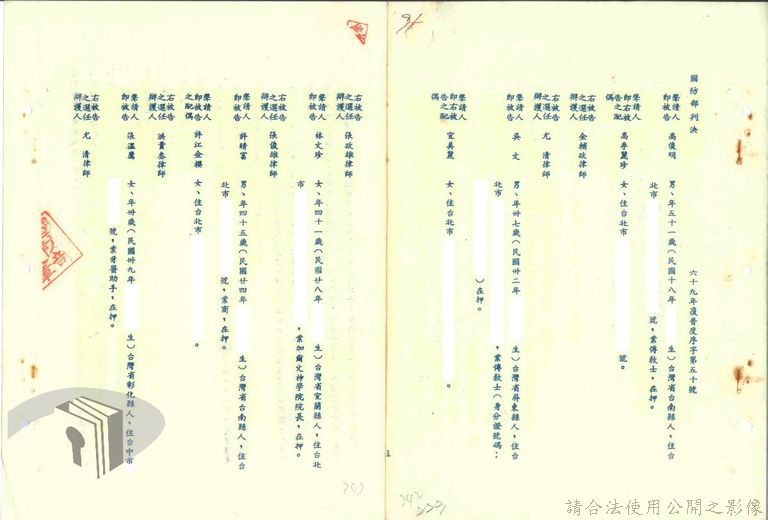 國防部判決
六十九年覆普度序字第五十號
聲請人即被告 高俊明 男、年五十一歲(民國十八年 生)台灣省台南縣人,住台北市 號,業傳教士,在押。
聲請人即右被告之配偶 高李麗珍 女、住台北市 號。
右被告之選任辯護人 金輔政律師
聲請人即被告 吳 文 男、年卅七歲(民國卅二年 生)台灣省屏東縣人,住台北市 ,業傳教士(身分證號碼: )在押。
右被告之選任辯護人 尤 清律師
聲請人即右被告之配偶 宜美麗 女、住台北市 。
1
右被告之選任辯護人 張政雄律師
聲請人即被告 林文珍 女、年四十一歲(民國廿八年 生)台灣省宜蘭縣人,住台北市 ,業加爾文神學院院長,在押。
右被告之選任辯護人 張俊雄律師
聲請人即被告 許晴富 男、年四十五歲(民國廿四年 生)台灣省台南縣人,住台北市 號,業商,在押。
聲請人即被告之配偶 許江金櫻 女、住台北市 。
右被告之選任辯護人 洪貴叁律師
聲請人即被告 張溫鷹 女、年卅歲(民國卅九年 生)台灣省彰化縣人,住台中市 號,業牙醫助手,在押。
右被告之選任辯護人 尤 清律師
343
342
請合法使用公開之影像